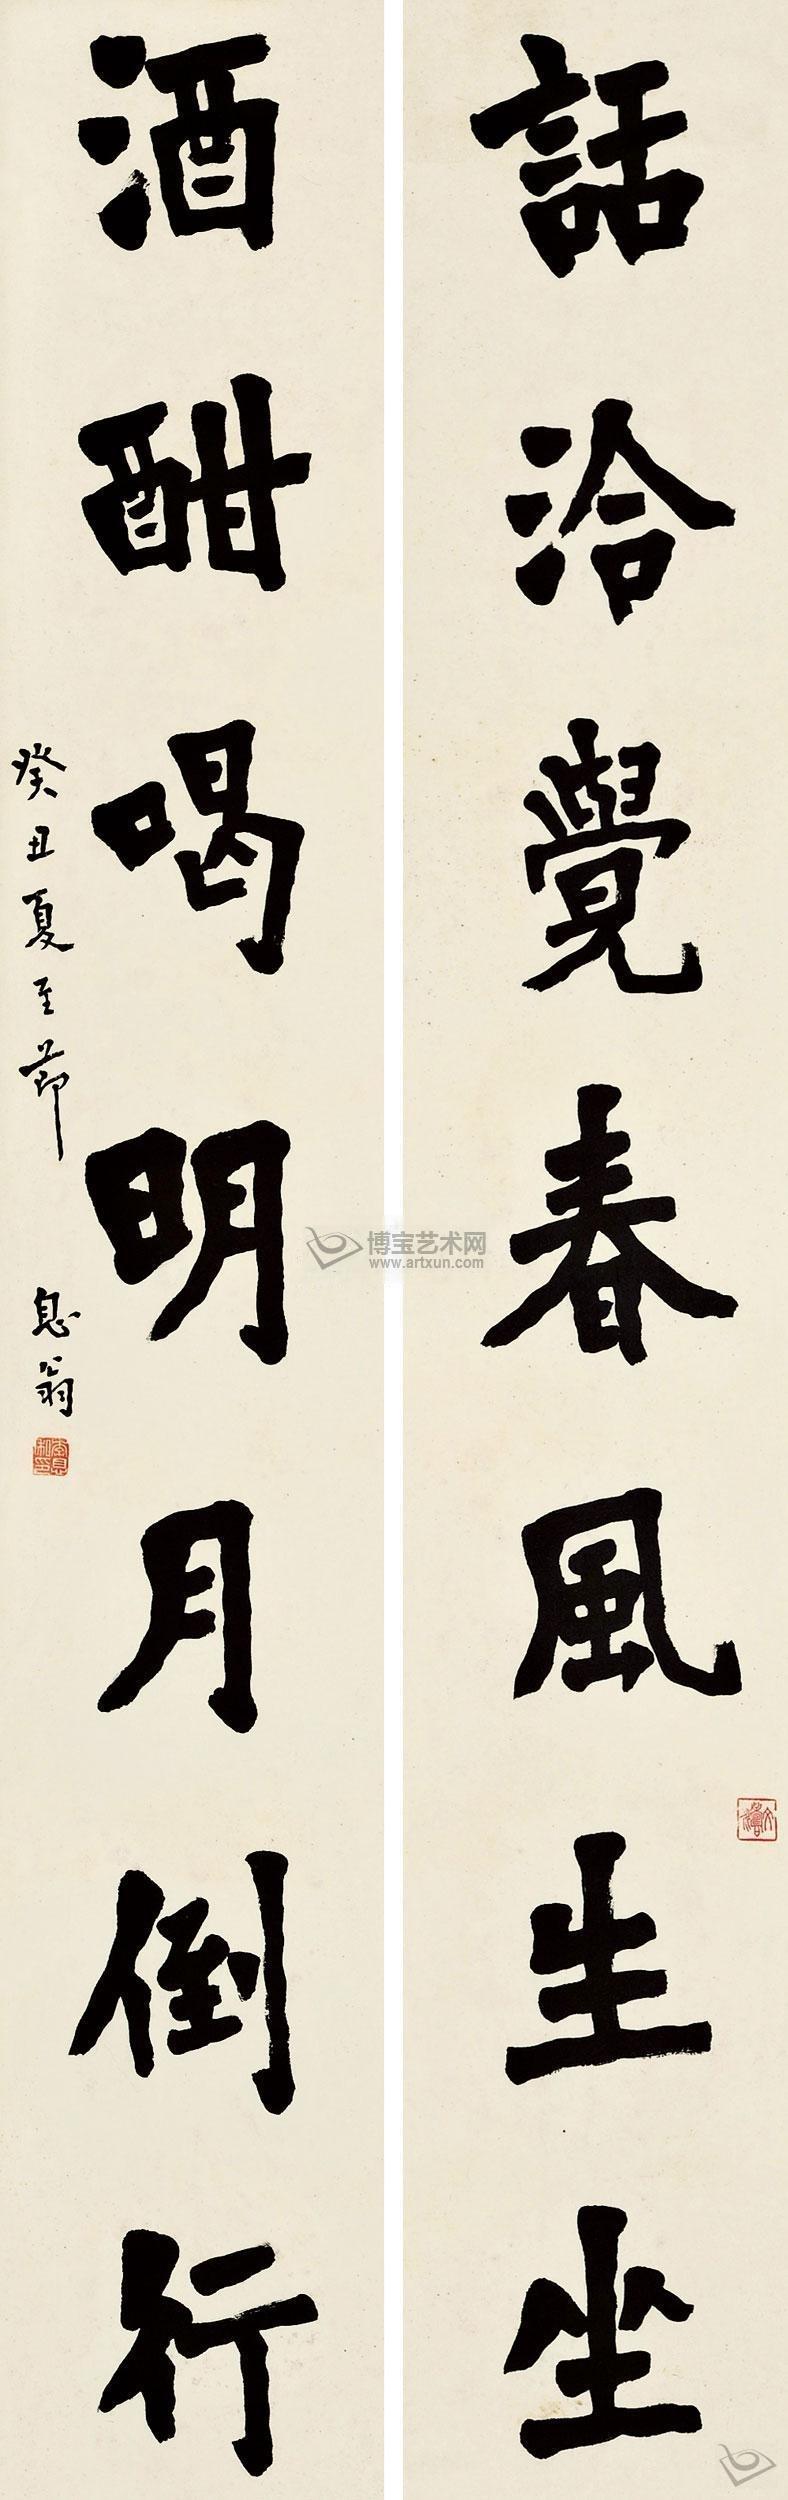 話洽覺春風生坐
酒酣喝明月倒行
癸丑夏至節
息翁
博宝艺术网
www.artxun.com